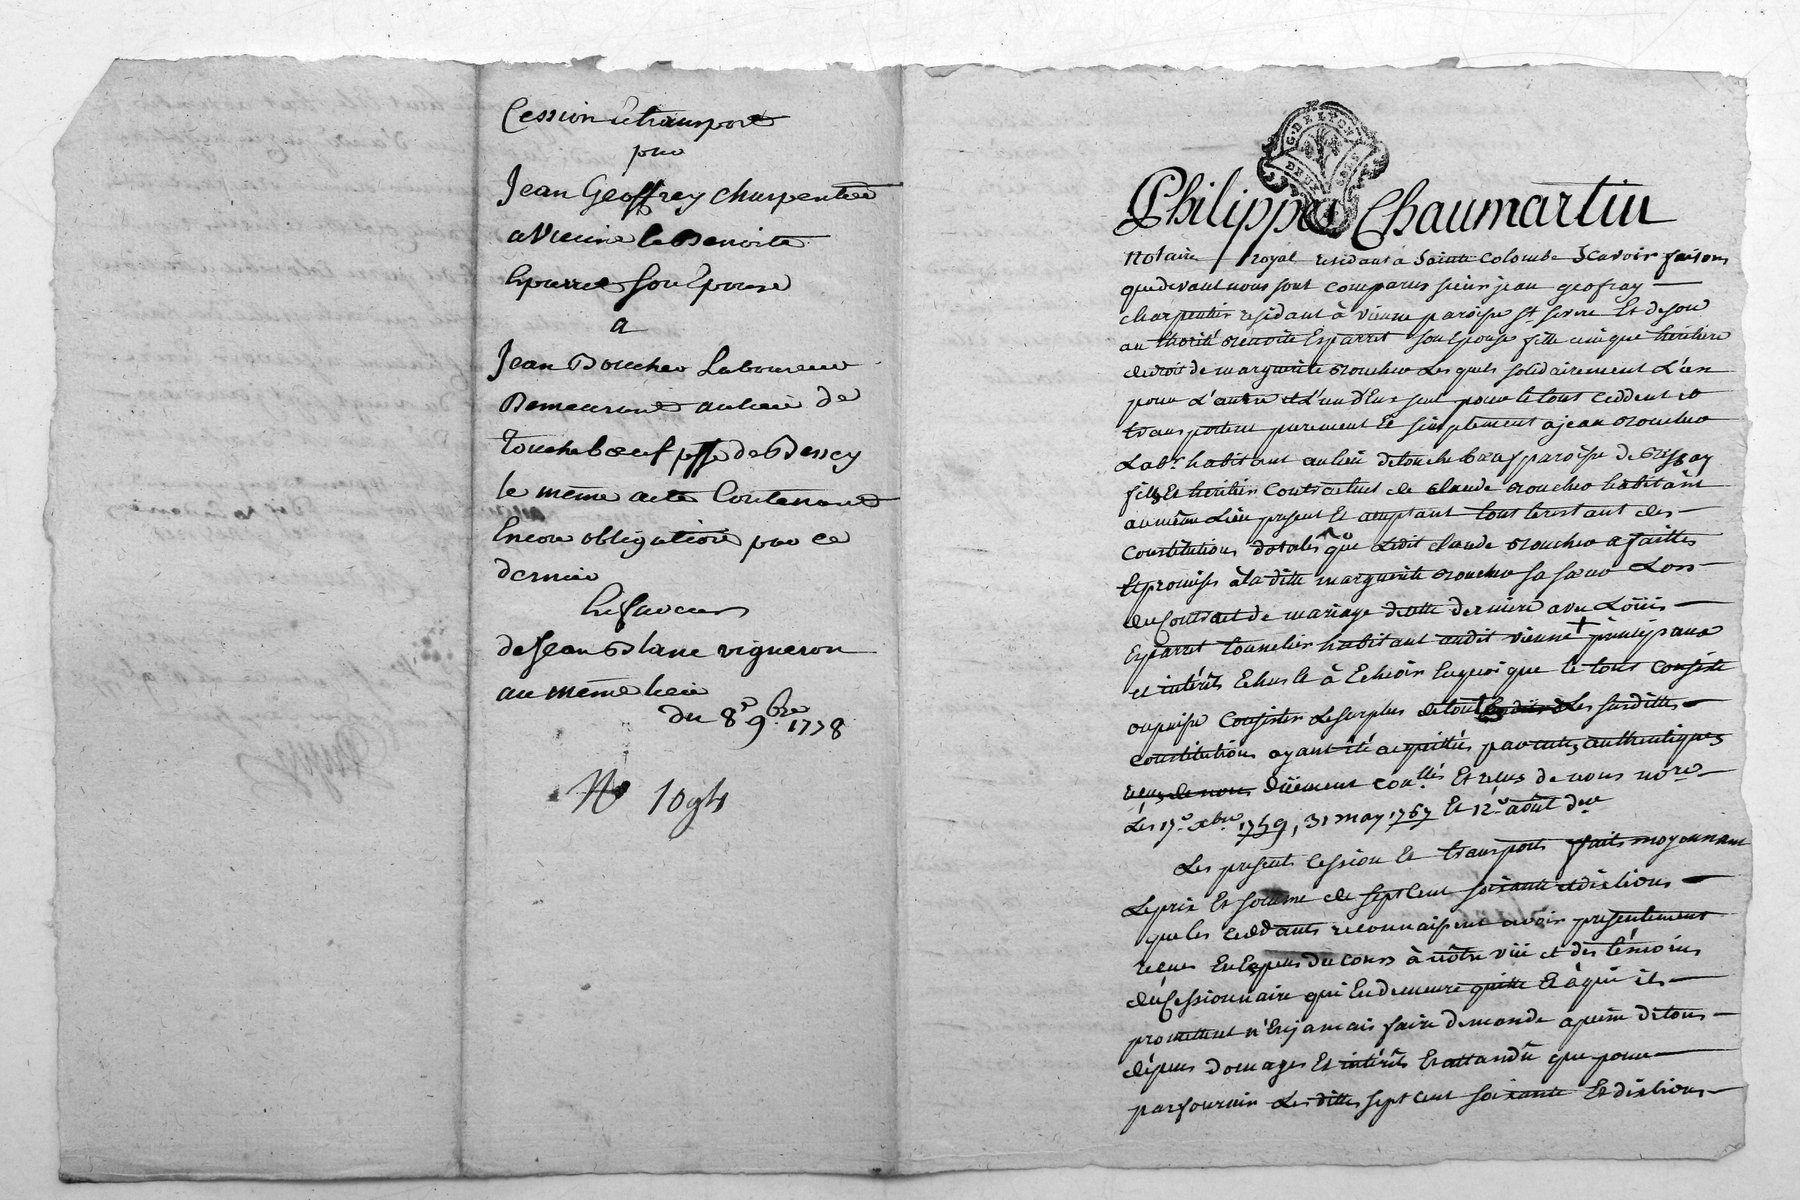 Cession & transport
par
Jean Geoffrey charpentier
a Vienne & Benoite
Esparret son Epouse
a
Jean Boucher Laboureur
Demeurant au lieu de
Toucheboeuf psse de Bessey
le même acte Contenant
Encore obligation par ce
dernier
En faveur
de Jean Blanc vigneron
au même lieu
du 8e 9bre 1778
No
G. DE LYON
DEUX SOLS
Philippe Chaumartin
Notaire royal residant à Sainte Colombe Scavoir faisons
que devant nous sont comparus sieur jean geofray
charpentier residant à vienne paroisse st severe Et de son
authorité Benoite Esparret son Epouse fille unique heritiere
de droit de marguerite Boucher Lesquels solidairement L'un
pour L'autre et L'un d'Eux seul pour le tout ceddent et
transportent purement Et simplement a jean Boucher
Labr habitant au lieu de toucheboeuf paroisse de Bessay
fils Et heritier Contractuel de claude Boucher habitant
au même Lieu present Et acceptant tout le restant des
Constitutions dotales que Ledit claude Boucher a faittes
Et promises à la ditte marguerite Boucher sa sœur Lors
du Contract de mariage de cette derniere avec Loüis
Esparret tonnelier habitant audit vienne + principaux
et intérêts Echus & à Echeoir En quoi que le tout consiste
ou puisse Consister Le surplus de tout Les susdittes
constitutions ayant été acquittées par actes authentiques
reçus de nous düement con.llés Et reçus de nous no.re
Les 17e xbre 1759, 31 may 1767 Et 12e août der
Les presents Cession Et transport faits moyennant
Le prix Et somme de sept Cent soixante et dix livres
que les ceddants reconnaissent avoir presentement
reçue En Especes du cours à nôtre vüe et des témoins
du Cessionnaire qui En demeure quitte Et à qui ils
promettent n'En jamais faire demande a peine de tous
dépens domages Et intérêts Et attandû que pour
parfournir Les dittes sept cent soixante Et dix livres